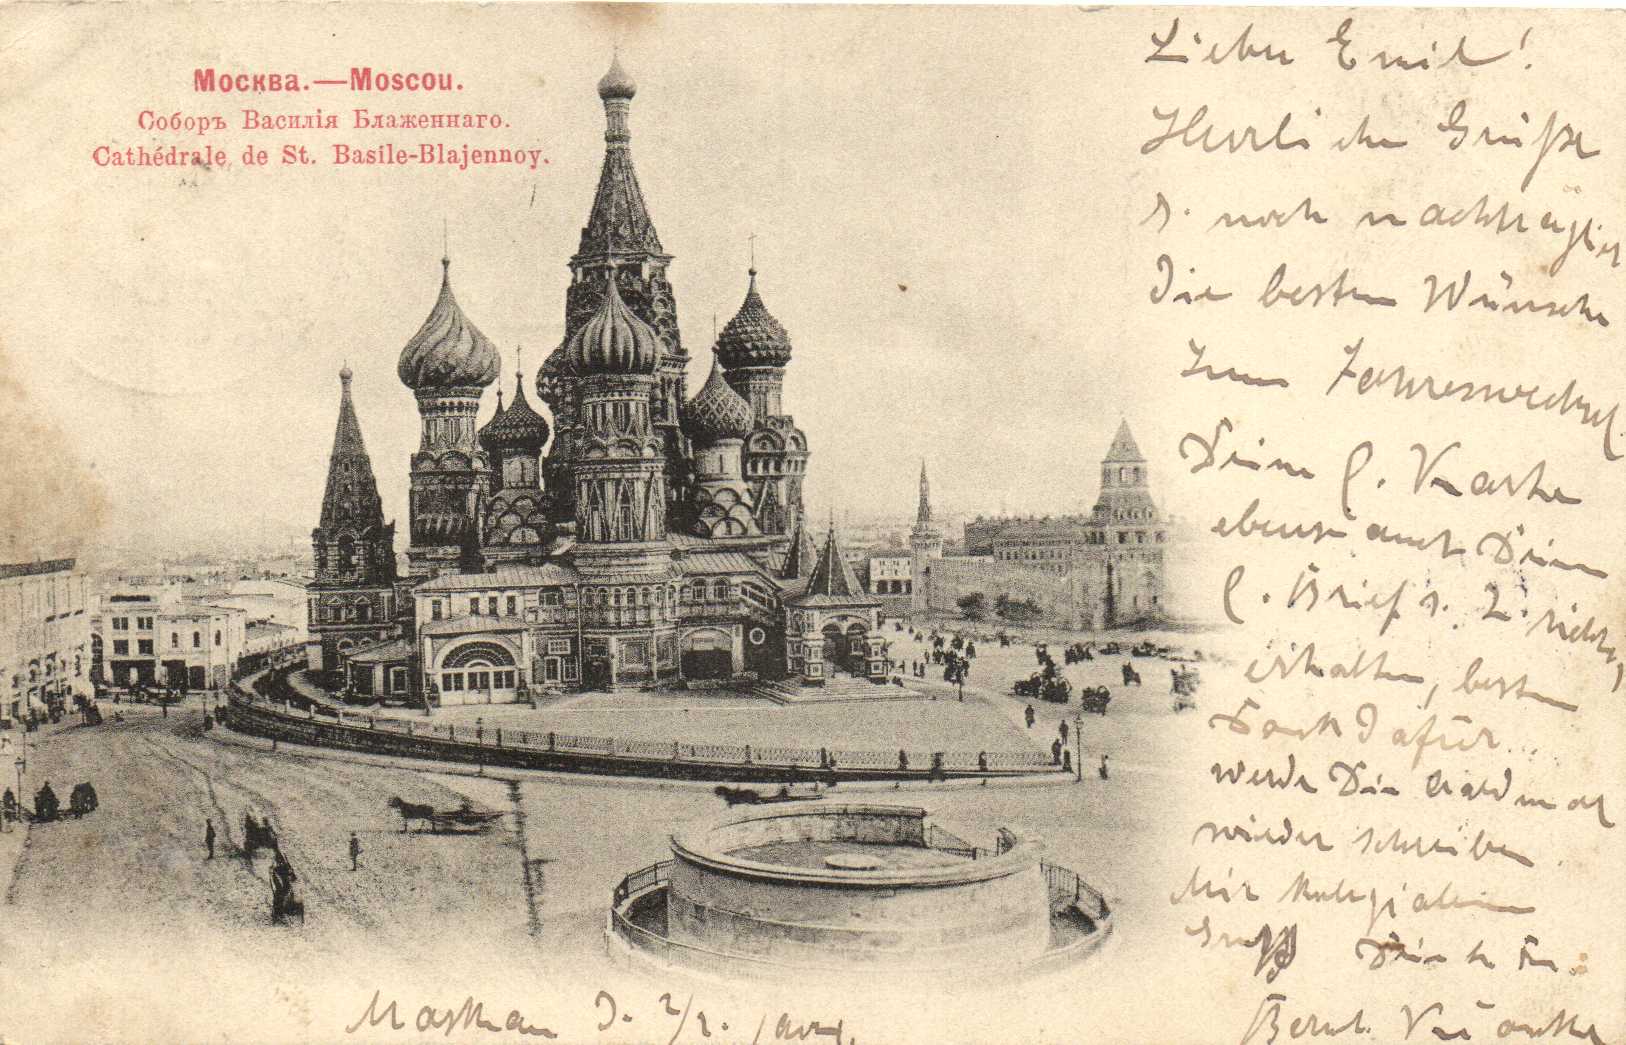 Москва.—Moscou.
Соборъ Василія Блаженнаго.
Cathédrale de St. Basile-Blajennoy.
Lieber Emil!
Herzliche Grüße
u. noch nachträglich
die besten Wünsche
zum Jahreswechsel
Deine l. Karte
ebenso auch Deinen
l. Brief v. richtig
erhalten, besten
Dank dafür
werde Dir
wieder schreiben
Mit
Gruß Dein
Moskau d. 2/1.